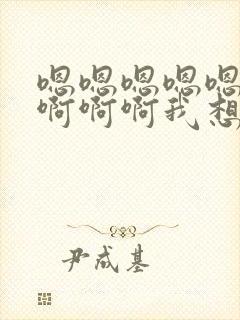 嗯嗯嗯嗯嗯
啊啊啊我想
尹成基